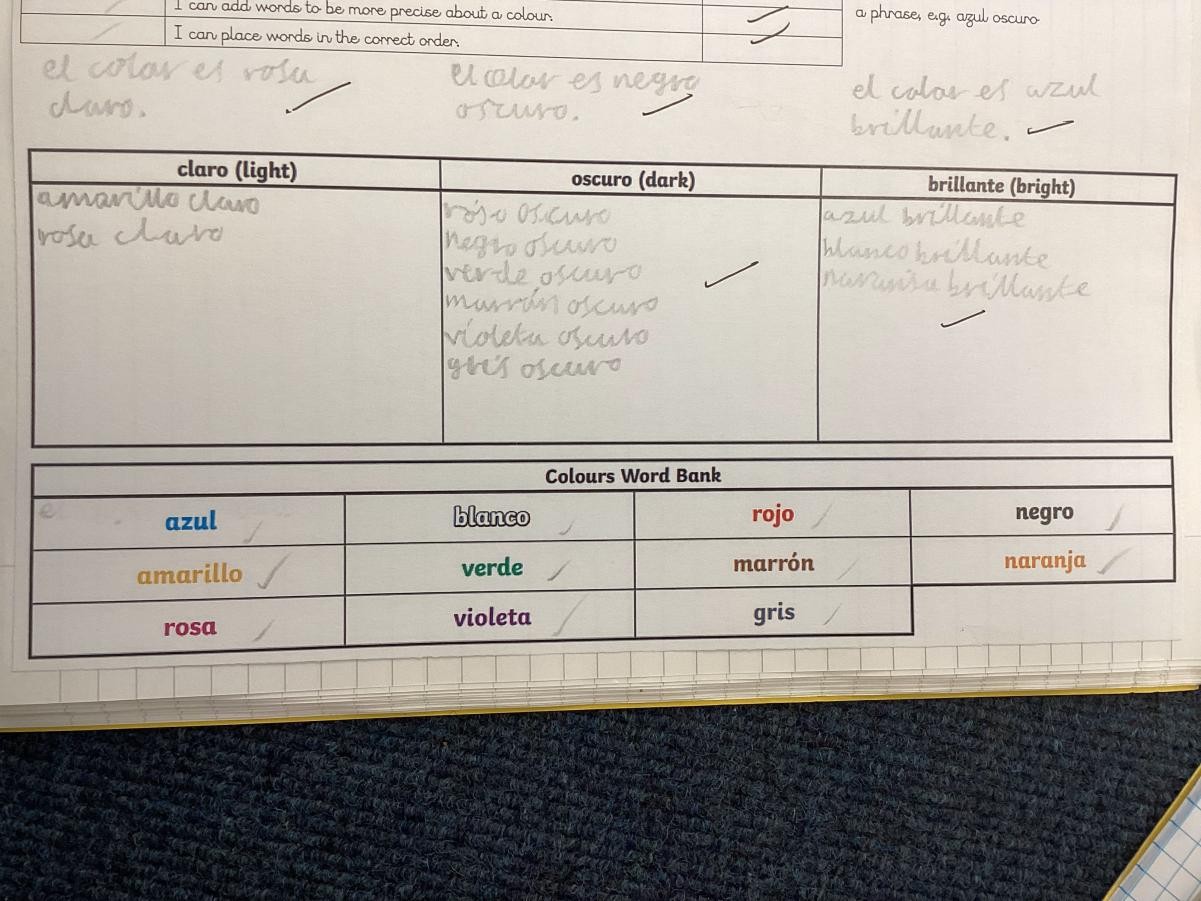 I can add words to be more precise about a colour.
a phrase, e.g. azul oscuro
I can place words in the correct order.
el color es rosa
claro.
el color es negro
oscuro.
el color es azul
brillante.
claro (light)
amarillo claro
rosa claro
oscuro (dark)
rojo oscuro
negro oscuro
verde oscuro
marrón oscuro
violeta oscuro
gris oscuro
brillante (bright)
azul brillante
blanco brillante
naranja brillante
Colours Word Bank
azul blanco rojo negro
amarillo verde marrón naranja
rosa violeta gris